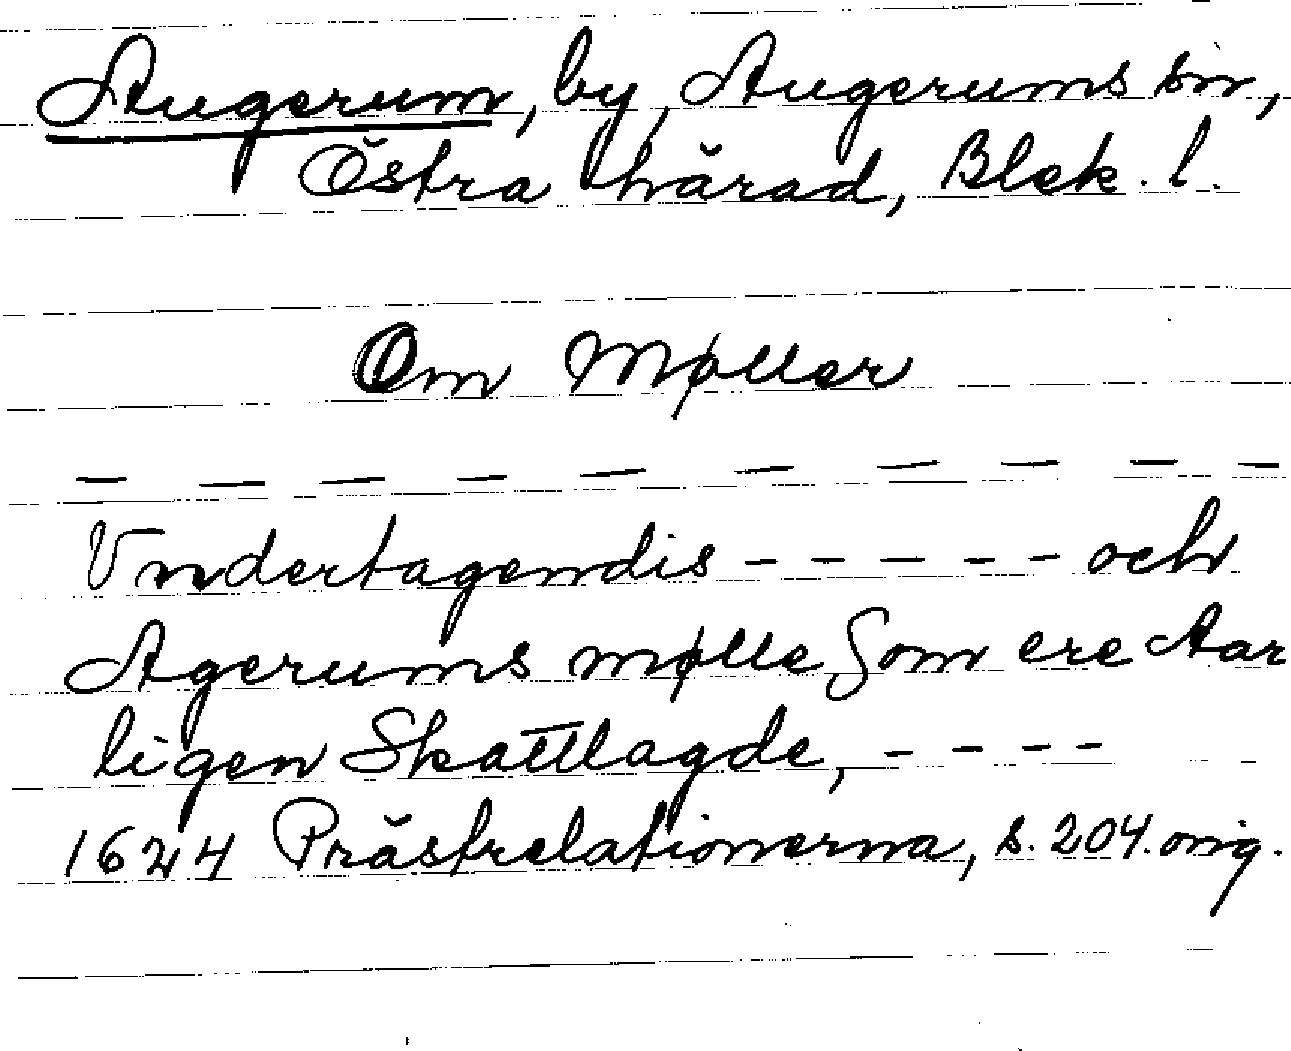 Augerum, by, Augerums sn,
Östra härad, Blek. l.
Om Møller
— — — — — — — — —
Vndertagendis - - - - - och
Agerums mølle Som ere Aar
ligen Skattlagde, - - - -
1624 Prästrelationerna, s. 204. orig.